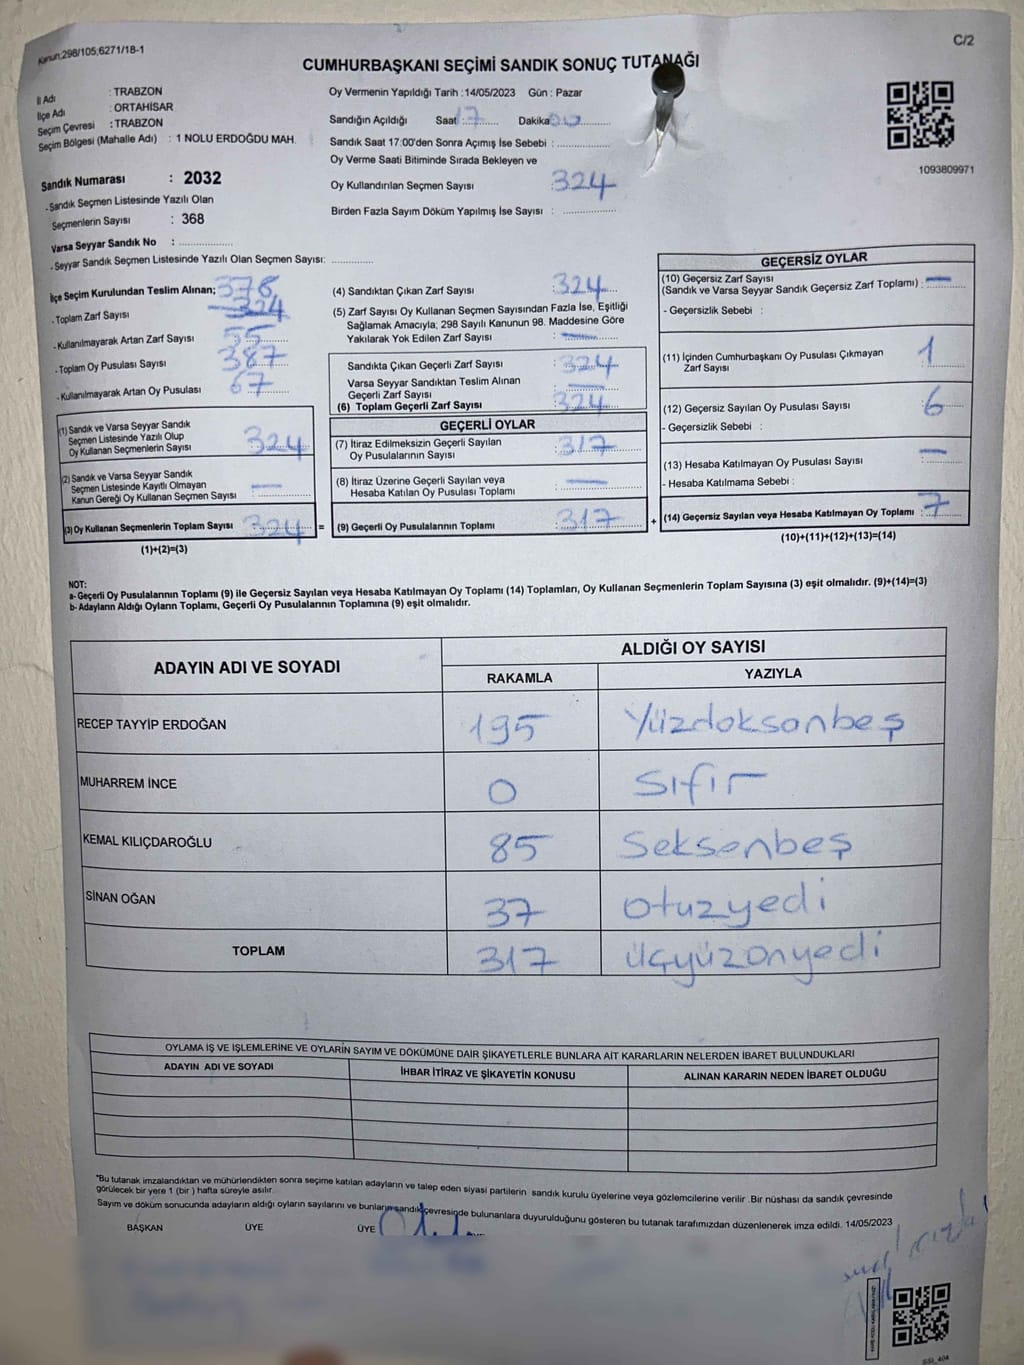 Kanun;298/105;6271/18-1
C/2
CUMHURBAŞKANI SEÇİMİ SANDIK SONUÇ TUTANAĞI
İl Adı : TRABZON
İlçe Adı : ORTAHİSAR
Seçim Çevresi : TRABZON
Seçim Bölgesi (Mahalle Adı) : 1 NOLU ERDOĞDU MAH.
Oy Vermenin Yapıldığı Tarih :14/05/2023 Gün : Pazar
Sandığın Açıldığı Saat : 17 Dakika 00
Sandık Saat 17:00'den Sonra Açımış İse Sebebi :
Oy Verme Saati Bitiminde Sırada Bekleyen ve
Oy Kullandırılan Seçmen Sayısı : 324
Birden Fazla Sayım Döküm Yapılmış İse Sayısı :
1093809971
Sandık Numarası : 2032
- Sandık Seçmen Listesinde Yazılı Olan
Seçmenlerin Sayısı : 368
Varsa Seyyar Sandık No :
- Seyyar Sandık Seçmen Listesinde Yazılı Olan Seçmen Sayısı:
İlçe Seçim Kurulundan Teslim Alınan;
- Toplam Zarf Sayısı 324
- Kullanılmayarak Artan Zarf Sayısı 55
- Toplam Oy Pusulası Sayısı 387
- Kullanılmayarak Artan Oy Pusulası 67
(1) Sandık ve Varsa Seyyar Sandık
Seçmen Listesinde Yazılı Olup
Oy Kullanan Seçmenlerin Sayısı 324
(2) Sandık ve Varsa Seyyar Sandık
Seçmen Listesinde Kayıtlı Olmayan
Kanun Gereği Oy Kullanan Seçmen Sayısı : —
(3) Oy Kullanan Seçmenlerin Toplam Sayısı : 324 =
(1)+(2)=(3)
(4) Sandıktan Çıkan Zarf Sayısı : 324
(5) Zarf Sayısı Oy Kullanan Seçmen Sayısından Fazla İse, Eşitliği
Sağlamak Amacıyla; 298 Sayılı Kanunun 98. Maddesine Göre
Yakılarak Yok Edilen Zarf Sayısı : —
Sandıkta Çıkan Geçerli Zarf Sayısı : 324
Varsa Seyyar Sandıktan Teslim Alınan
Geçerli Zarf Sayısı : —
(6) Toplam Geçerli Zarf Sayısı : 324
GEÇERLİ OYLAR
(7) İtiraz Edilmeksizin Geçerli Sayılan
Oy Pusulalarının Sayısı : 317
(8) İtiraz Üzerine Geçerli Sayılan veya
Hesaba Katılan Oy Pusulası Toplamı : —
(9) Geçerli Oy Pusulalarının Toplamı : 317 +
GEÇERSİZ OYLAR
(10) Geçersiz Zarf Sayısı
(Sandık ve Varsa Seyyar Sandık Geçersiz Zarf Toplamı) : —
- Geçersizlik Sebebi :
(11) İçinden Cumhurbaşkanı Oy Pusulası Çıkmayan
Zarf Sayısı : 1
(12) Geçersiz Sayılan Oy Pusulası Sayısı : 6
- Geçersizlik Sebebi :
(13) Hesaba Katılmayan Oy Pusulası Sayısı : —
- Hesaba Katılmama Sebebi :
(14) Geçersiz Sayılan veya Hesaba Katılmayan Oy Toplamı : 7
(10)+(11)+(12)+(13)=(14)
NOT:
a- Geçerli Oy Pusulalarının Toplamı (9) ile Geçersiz Sayılan veya Hesaba Katılmayan Oy Toplamı (14) Toplamları, Oy Kullanan Seçmenlerin Toplam Sayısına (3) eşit olmalıdır. (9)+(14)=(3)
b- Adayların Aldığı Oyların Toplamı, Geçerli Oy Pusulalarının Toplamına (9) eşit olmalıdır.
ADAYIN ADI VE SOYADI
ALDIĞI OY SAYISI
RAKAMLA YAZIYLA
RECEP TAYYİP ERDOĞAN 195 Yüzdoksanbeş
MUHARREM İNCE 0 Sıfır
KEMAL KILIÇDAROĞLU 85 Seksenbeş
SİNAN OĞAN 37 otuzyedi
TOPLAM 317 üçyüzonyedi
OYLAMA İŞ VE İŞLEMLERİNE VE OYLARIN SAYIM VE DÖKÜMÜNE DAİR ŞİKAYETLERLE BUNLARA AİT KARARLARIN NELERDEN İBARET BULUNDUKLARI
ADAYIN ADI VE SOYADI İHBAR İTİRAZ VE ŞİKAYETİN KONUSU ALINAN KARARIN NEDEN İBARET OLDUĞU
*Bu tutanak imzalandıktan ve mühürlendikten sonra seçime katılan adayların ve talep eden siyasi partilerin sandık kurulu üyelerine veya gözlemcilerine verilir .Bir nüshası da sandık çevresinde
görülecek bir yere 1 (bir ) hafta süreyle asılır.
Sayım ve döküm sonucunda adayların aldığı oyların sayılarını ve bunların sandık çevresinde bulunanlara duyurulduğunu gösteren bu tutanak tarafımızdan düzenlenerek imza edildi. 14/05/2023
BAŞKAN ÜYE ÜYE